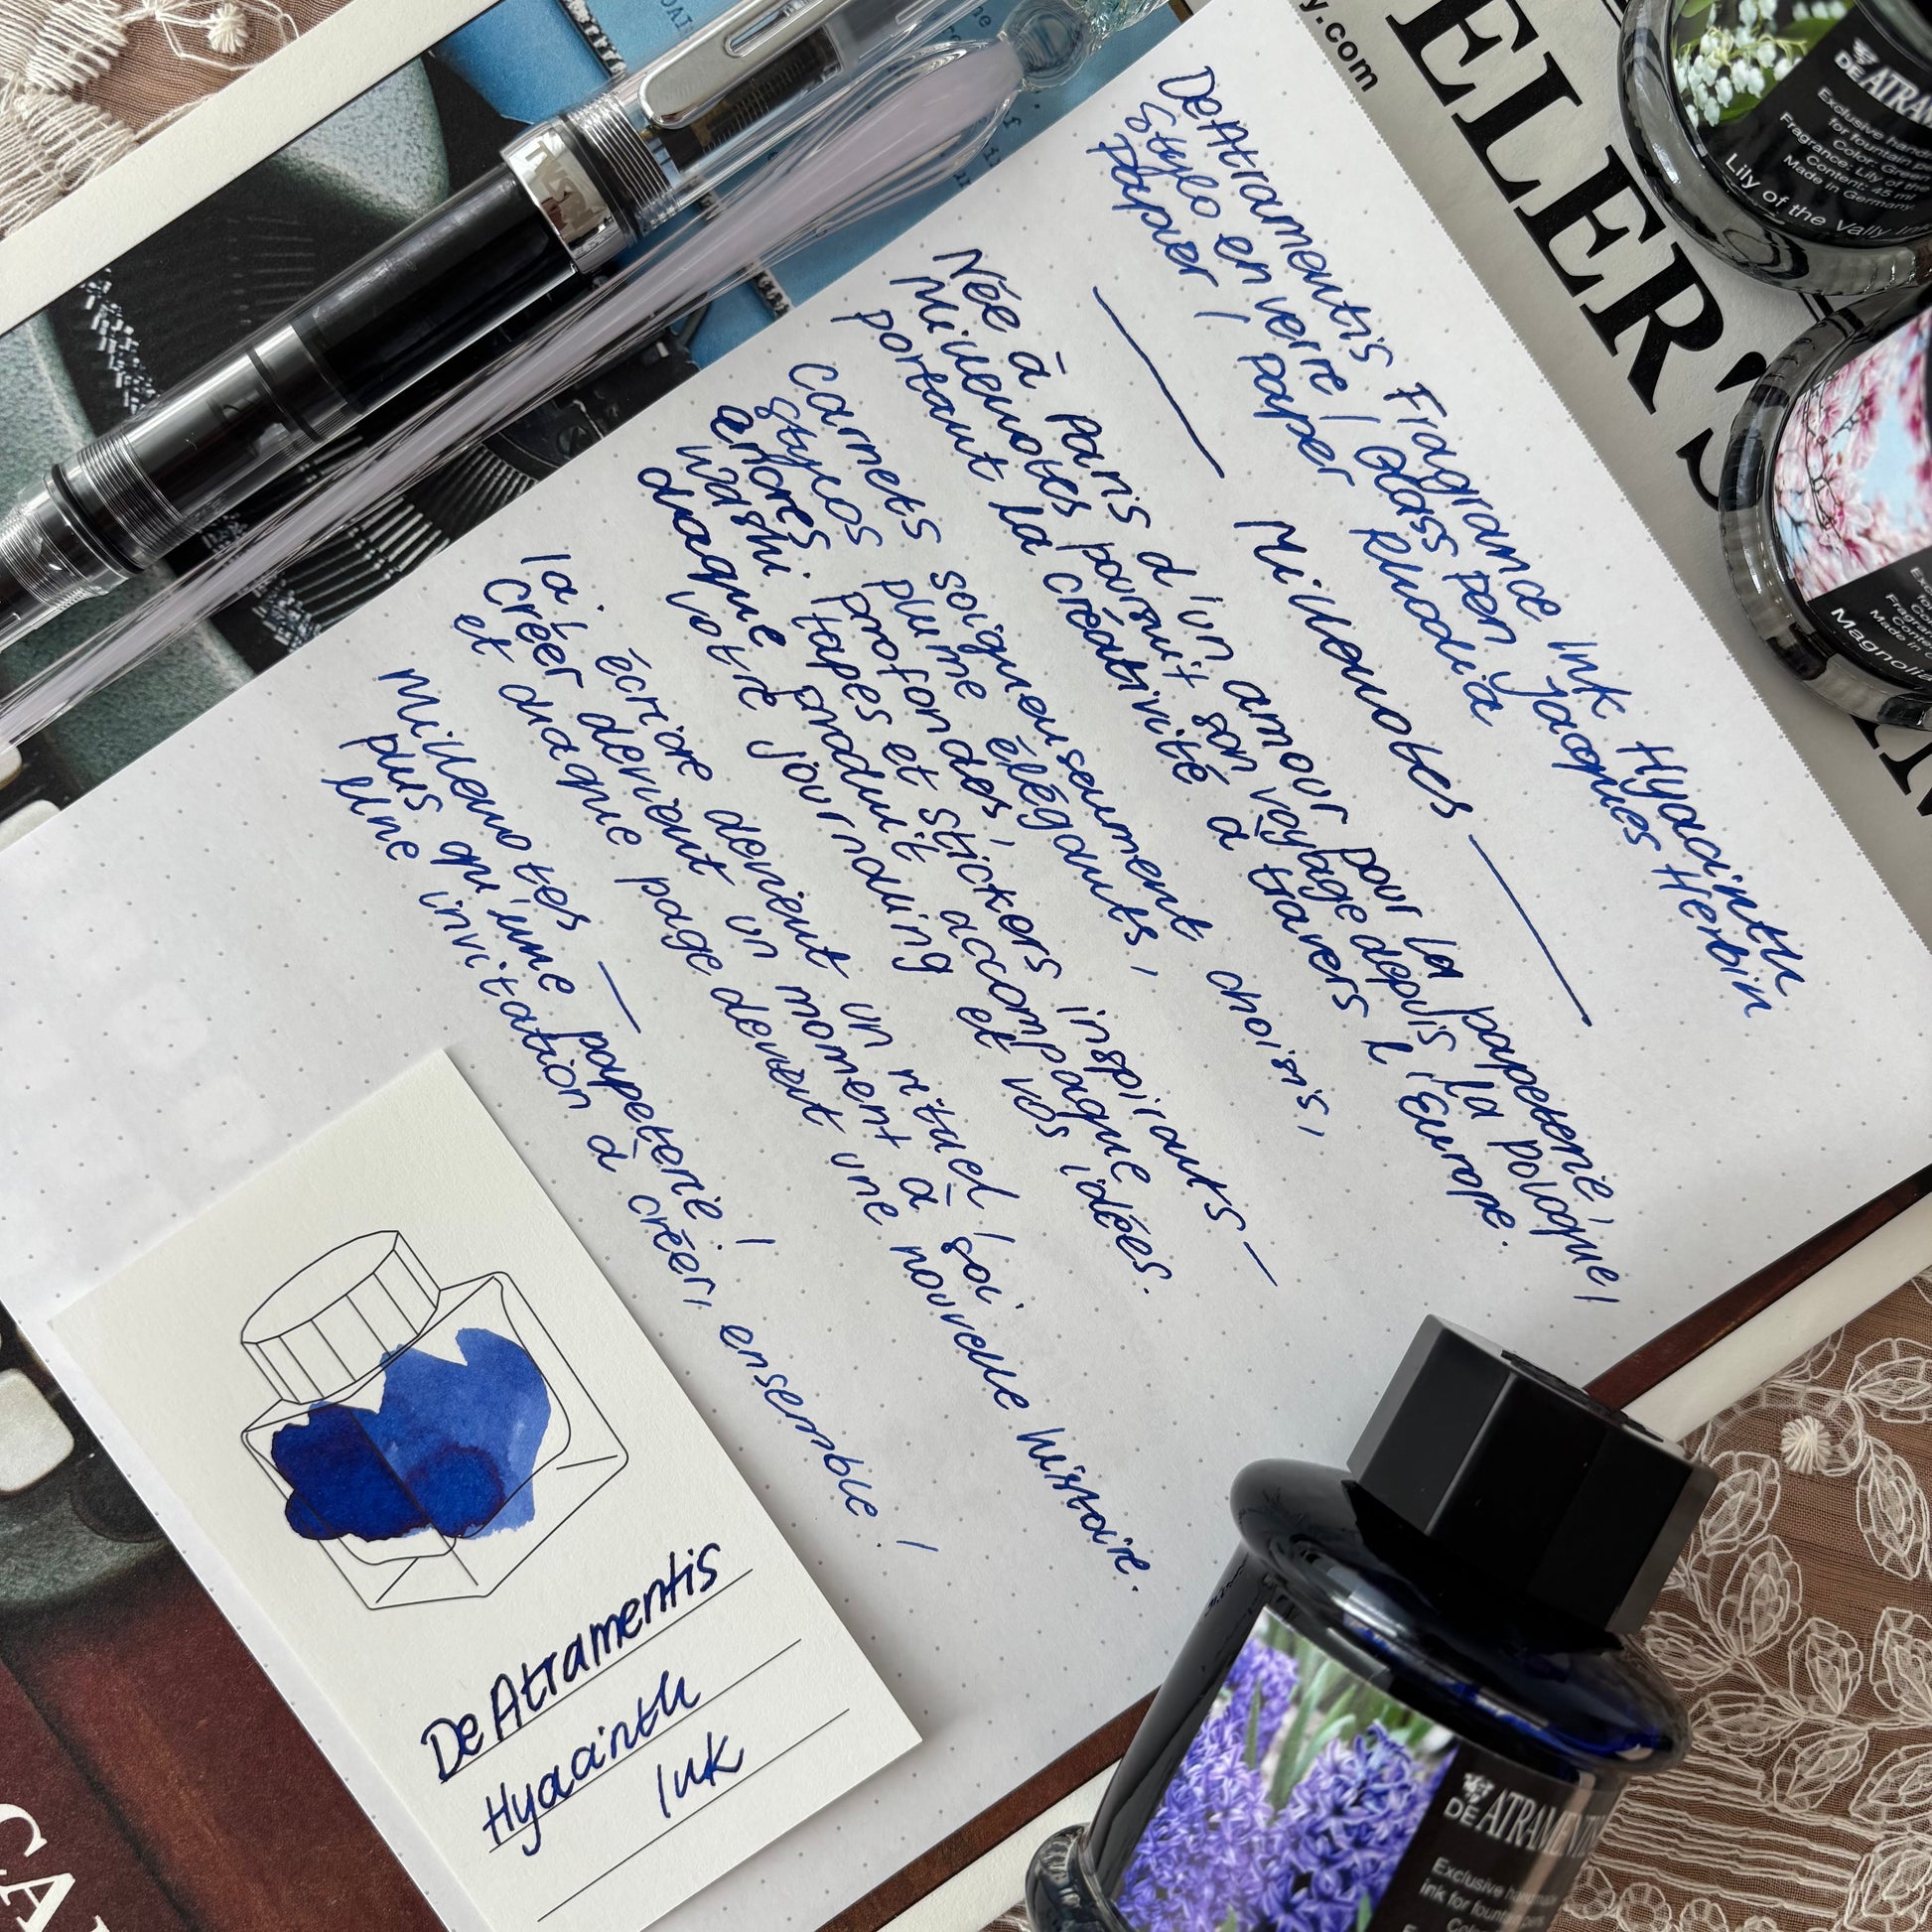 DeAtramentis Fragrance Ink Hyacinth
Stylo en verre / Glass Pen Jacques Herbin
Papier / Paper Rhodia
— Millenotes —
Née à Paris d'un amour pour la papeterie,
Millenotes poursuit son voyage depuis la Pologne,
portant la créativité à travers l'Europe.
Carnets soigneusement choisis,
stylos plume élégants,
encres profondes,
washi tapes et stickers inspirants —
chaque produit accompagne
votre journaling et vos idées.
Ici, écrire devient un rituel,
créer devient un moment à soi,
et chaque page devient une nouvelle histoire.
Millenotes —
plus qu'une papeterie,
une invitation à créer, ensemble !
De Atramentis
Hyacinth
Ink
DE ATRAMENTIS
Exclusive
ink for fountain
DE ATRAM
Exclusive
for fountain
Color: Gre
Fragrance: Lily of the
Content: 45 ml
Made in Germany
Lily of the Vally
Magnoli
y.com
ELER'S
TWSBI
CA